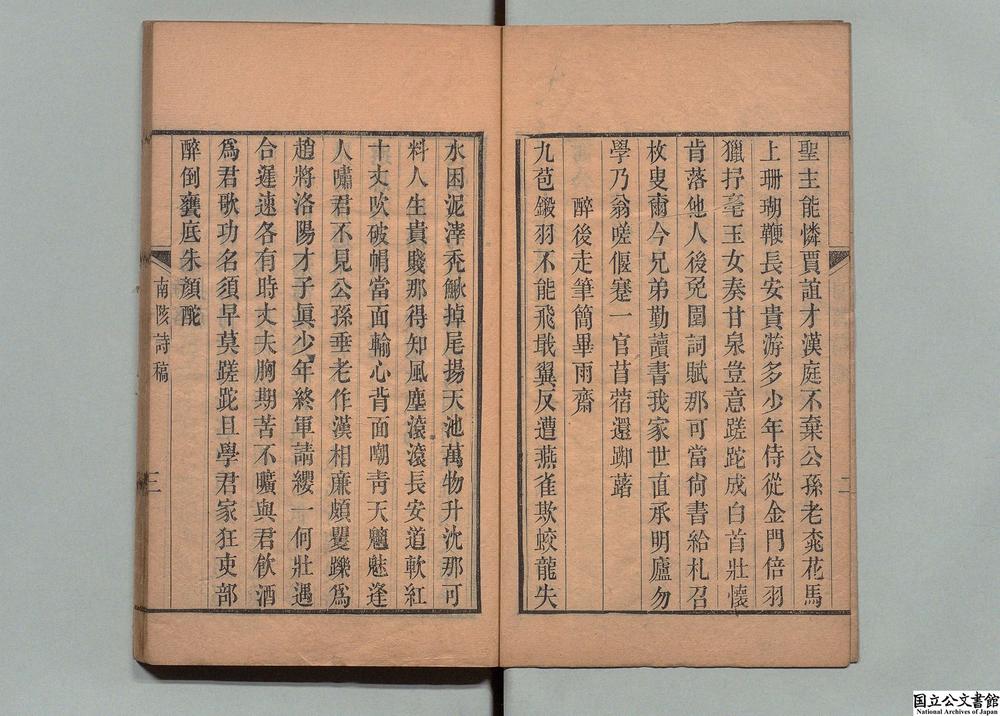 聖主能憐賈誼才漢庭不棄公孫老桃花馬
上珊瑚鞭長安貴游多少年侍從金門倍羽
獵抒毫玉女奏甘泉豈意蹉跎成白首壯懷
肯落他人後兔園詞賦那可當尙書給札召
枚叟爾今兄弟勤讀書我家世直承明廬勿
學乃翁嗟偃蹇一官苜蓿還踟躇
醉後走筆簡畢雨齋
九苞鎩羽不能飛戢翼反遭燕雀欺蛟龍失
二
水困泥滓禿鰍掉尾揚天池萬物升沈那可
料人生貴賤那得知風塵滾滾長安道軟紅
十丈吹破帽當面輸心背面嘲靑天魑魅逢
人嘯君不見公孫垂老作漢相廉頗矍鑠爲
趙將洛陽才子眞少年終軍請纓一何壯遇
合遲速各有時丈夫胸期苦不曠與君飮酒
爲君歌功名須早莫蹉跎且學君家狂吏部
醉倒甕底朱顔酡
南陔詩稿
三
国立公文書館
National Archives of Japan